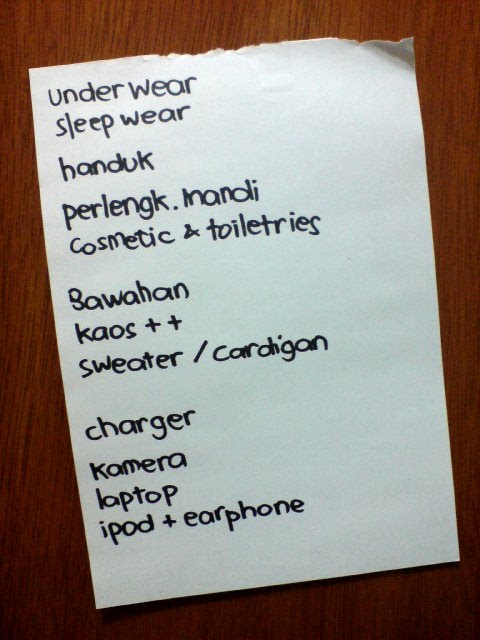 under wear
sleep wear
handuk
perlengk. mandi
cosmetic & toiletries
Bawahan
kaos ++
sweater / cardigan
charger
kamera
laptop
ipod + earphone